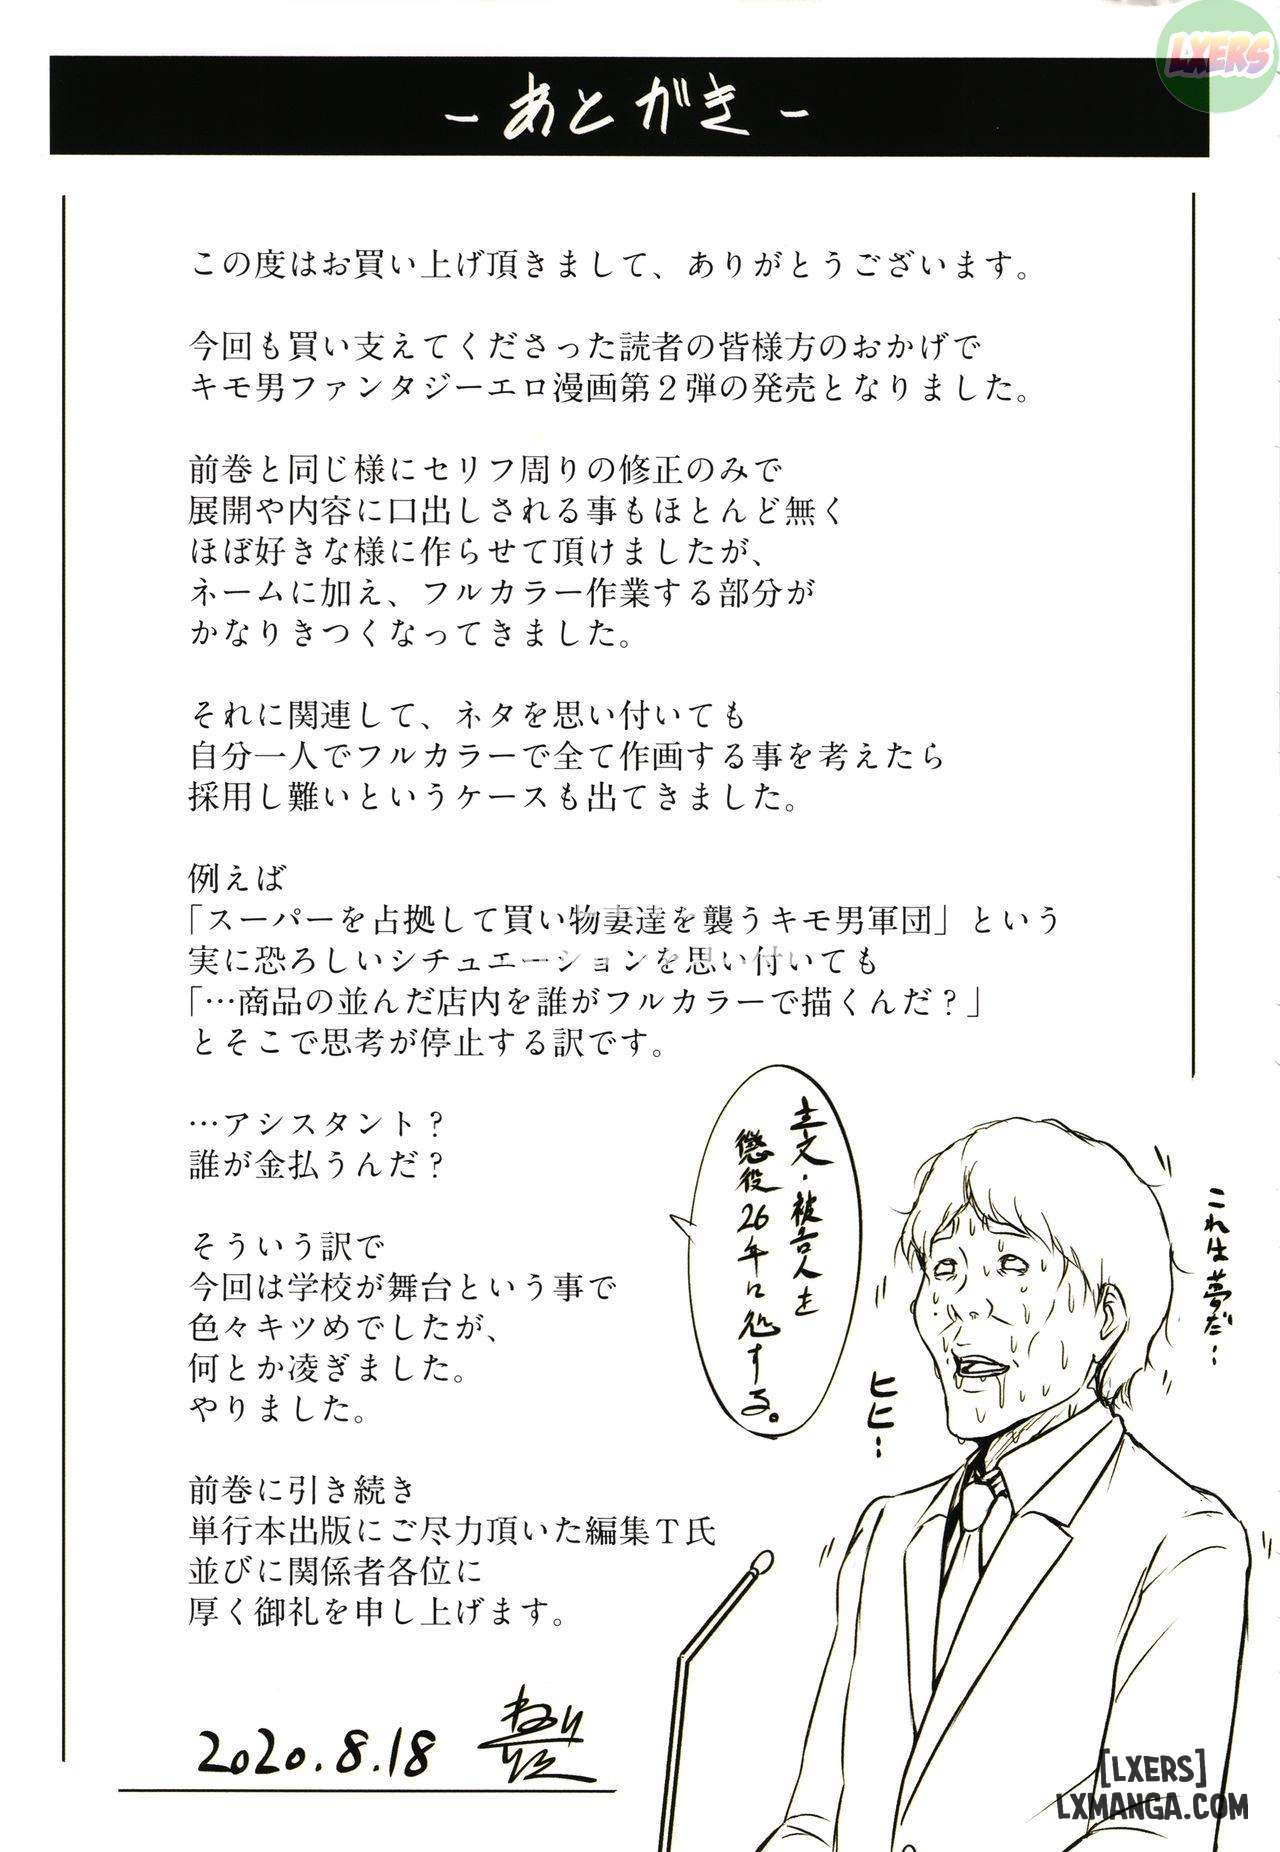 LXERS
- あとがき -
この度はお買い上げ頂きまして、ありがとうございます。
今回も買い支えてくださった読者の皆様方のおかげで
キモ男ファンタジーエロ漫画第２弾の発売となりました。
前巻と同じ様にセリフ周りの修正のみで
展開や内容に口出しされる事もほとんど無く
ほぼ好きな様に作らせて頂けましたが、
ネームに加え、フルカラー作業する部分が
かなりきつくなってきました。
それに関連して、ネタを思い付いても
自分一人でフルカラーで全て作画する事を考えたら
採用し難いというケースも出てきました。
例えば
「スーパーを占拠して買い物妻達を襲うキモ男軍団」という
実に恐ろしいシチュエーションを思い付いても
「…商品の並んだ店内を誰がフルカラーで描くんだ？」
とそこで思考が停止する訳です。
…アシスタント？
誰が金払うんだ？
そういう訳で
今回は学校が舞台という事で
色々キツめでしたが、
何とか凌ぎました。
やりました。
前巻に引き続き
単行本出版にご尽力頂いた編集Ｔ氏
並びに関係者各位に
厚く御礼を申し上げます。
2020.8.18
これは夢だ…
主文・被告人を
懲役26年に処する。
ヒヒ…
[LXERS]
LXMANGA.COM